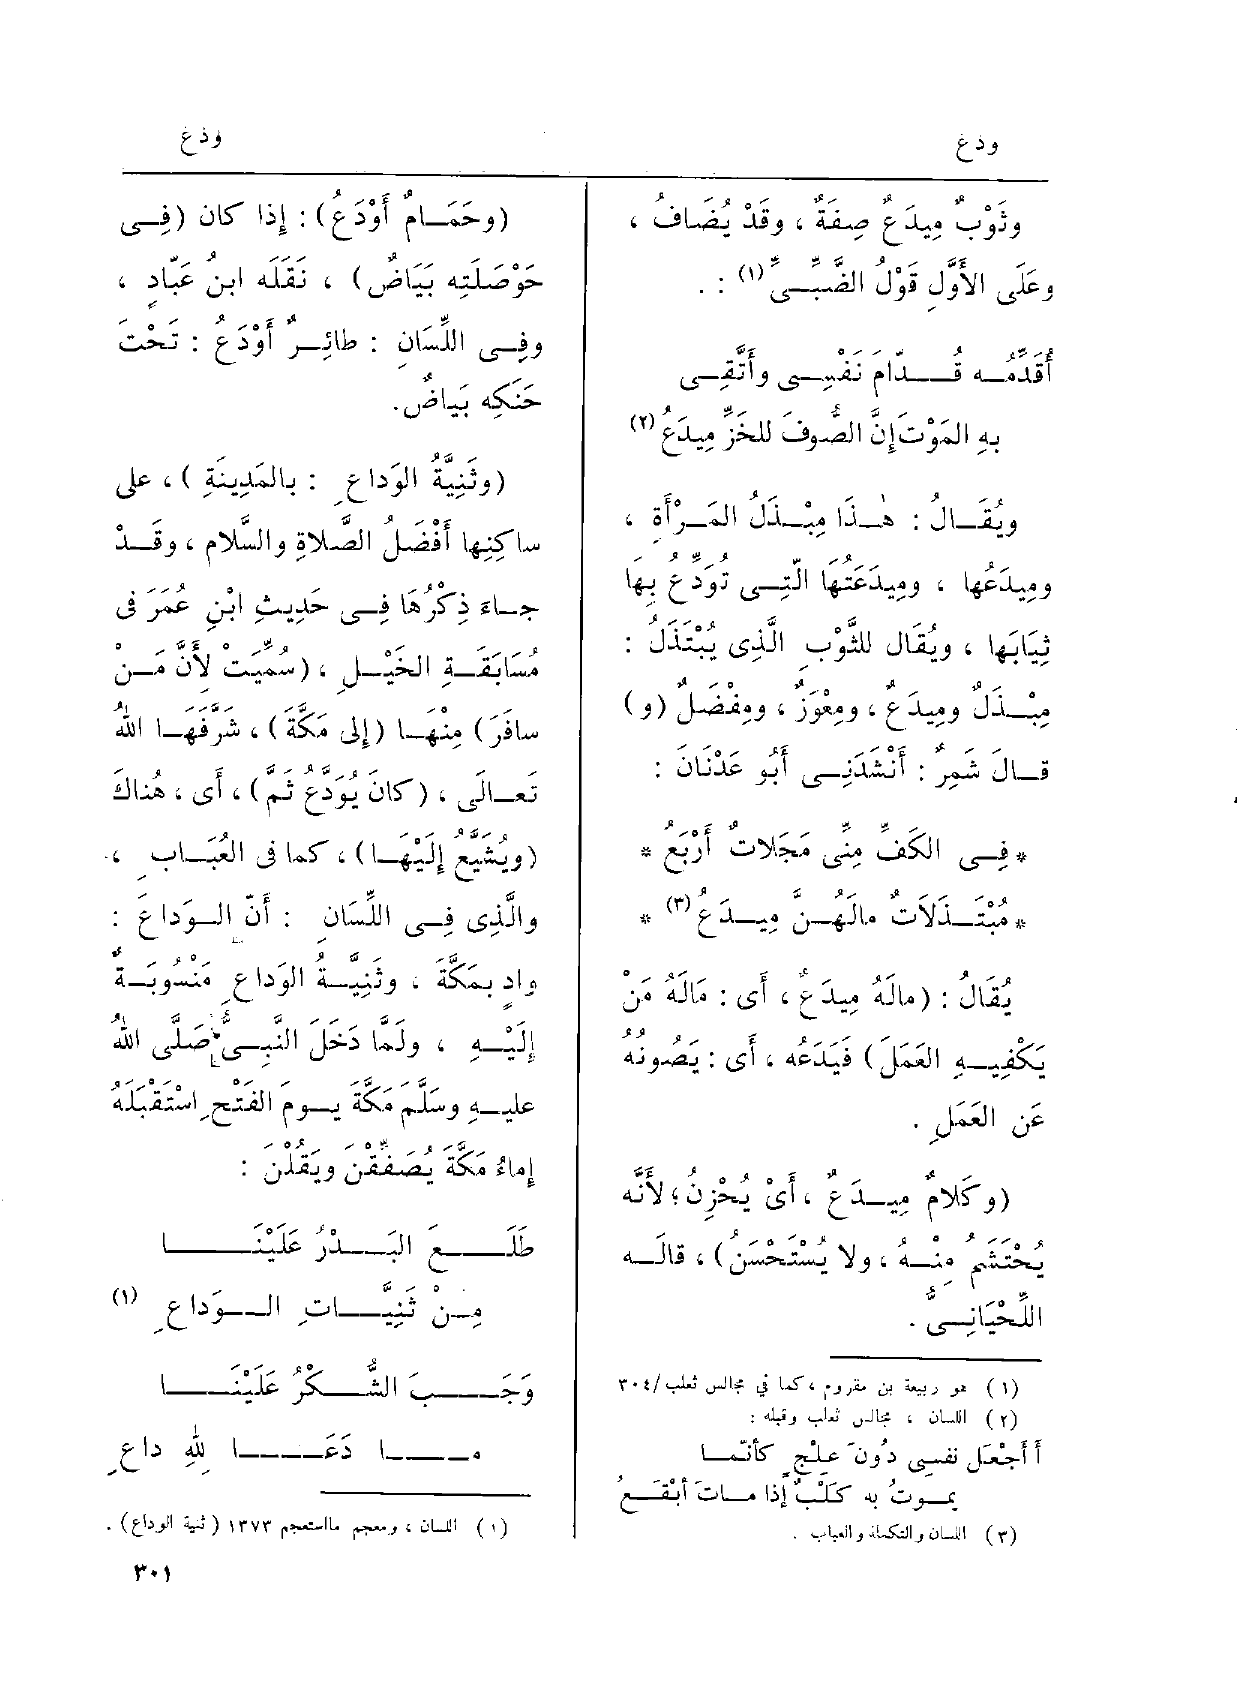 وذع
وذع
وثَوْبٌ مِيدَعٌ صِفَةٌ ، وقَدْ يُضَافُ ،
وعَلَى الأَوَّلِ قَوْلُ الضَّبِّىِّ(١) : .
أُقَدِّمُه قُدَّامَ نَفْسِى وأَتَّقِى
بهِ المَوْتَ إنَّ الصُّوفَ للخَزِّ مِيدَعُ(٢)
ويُقَالُ : هٰذَا مِبْذَلُ المَرْأَةِ ،
ومِيدَعُها ، ومِيدَعَتُها الَّتِى تُوَدِّعُ بِهَا
ثِيَابَها ، ويُقَال للثَّوْبِ الَّذِى يُبْتَذَلُ :
مِبْذَلٌ ومِيدَعٌ ، ومِعْوَزٌ ، ومِفْضَلٌ (و)
قالَ شَمِرٌ : أَنْشَدَنِى أَبُو عَدْنَانَ :
* فِى الكَفِّ مِنِّى مَجَلاتٌ أَرْبَعُ *
* مُبْتَذَلاتٌ مالَهُنَّ مِيدَعُ(٣) *
يُقَالُ : (مالَهُ مِيدَعٌ ، أَى : مَالَهُ مَنْ
يَكْفِيهِ العَمَلَ) فيَدَعُه ، أَى : يَصُونُهُ
عَنِ العَمَلِ .
(وكَلامٌ مِيدَعٌ ، أَىْ يُحْزِنُ ؛ لأَنَّه
يُحْتَشَمُ مِنْهُ ، ولا يُسْتَحْسَنُ) ، قالَه
اللِّحْيَانِىُّ .
(١) هو ربيعة بن مقروم ، كما في مجالس ثعلب/٣٠٤
(٢) اللسان ، مجالس ثعلب وقبله :
أَأَجْعَل نفسِى دُونَ عِلْجٍ كأنّما
يموتُ به كَلْبٌ إذا ماتَ أبْقَعُ
(٣) اللسان والتكملة والعباب .
(وحَمَامٌ أَوْدَعُ) : إذا كان (فِى
حَوْصَلَتِه بَيَاضٌ) ، نَقَلَه ابنُ عَبّادٍ ،
وفِى اللِّسَانِ : طائِرٌ أَوْدَعُ : تَحْتَ
حَنَكِه بَياضٌ .
(وثَنِيَّةُ الوَداعِ : بالمَدِينَةِ) ، على
ساكِنِها أَفْضَلُ الصَّلاةِ والسَّلامِ ، وقَدْ
جاءَ ذِكْرُهَا فِى حَدِيثِ ابْنِ عُمَرَ فى
مُسَابَقَةِ الخَيْلِ ، (سُمِّيَت لأَنَّ مَنْ
سافَرَ) مِنْهَا (إلى مَكَّةَ) ، شَرَّفَها اللهُ
تَعالَى ، (كانَ يُوَدَّعُ ثَمَّ) ، أَى ، هُناكَ
(ويُشَيَّعُ إلَيْهَا) ، كما فى العُبَابِ ،
والَّذِى فِى اللِّسَانِ : أَنّ الوَداعَ :
وادٍ بمَكَّةَ ، وثَنِيَّةُ الوَداعِ مَنْسُوبَةٌ
إِلَيْهِ ، ولَمَّا دَخَلَ النَّبِىُّ صَلَّى اللهُ
عليهِ وسَلَّمَ مَكَّةَ يومَ الفَتْحِ اسْتَقْبَلَهُ
إماءُ مَكَّةَ يُصَفِّقْنَ ويَقُلْنَ :
طَلَعَ البَدْرُ عَلَيْنَا
مِنْ ثَنِيَّاتِ الوَداعِ (١)
وَجَبَ الشُّكْرُ عَلَيْنَا
ما دَعَا لِلهِ داعِ
(١) اللسان ، ومعجم مااستعجم ١٣٧٣ (ثنية الوداع) .
٣٠١